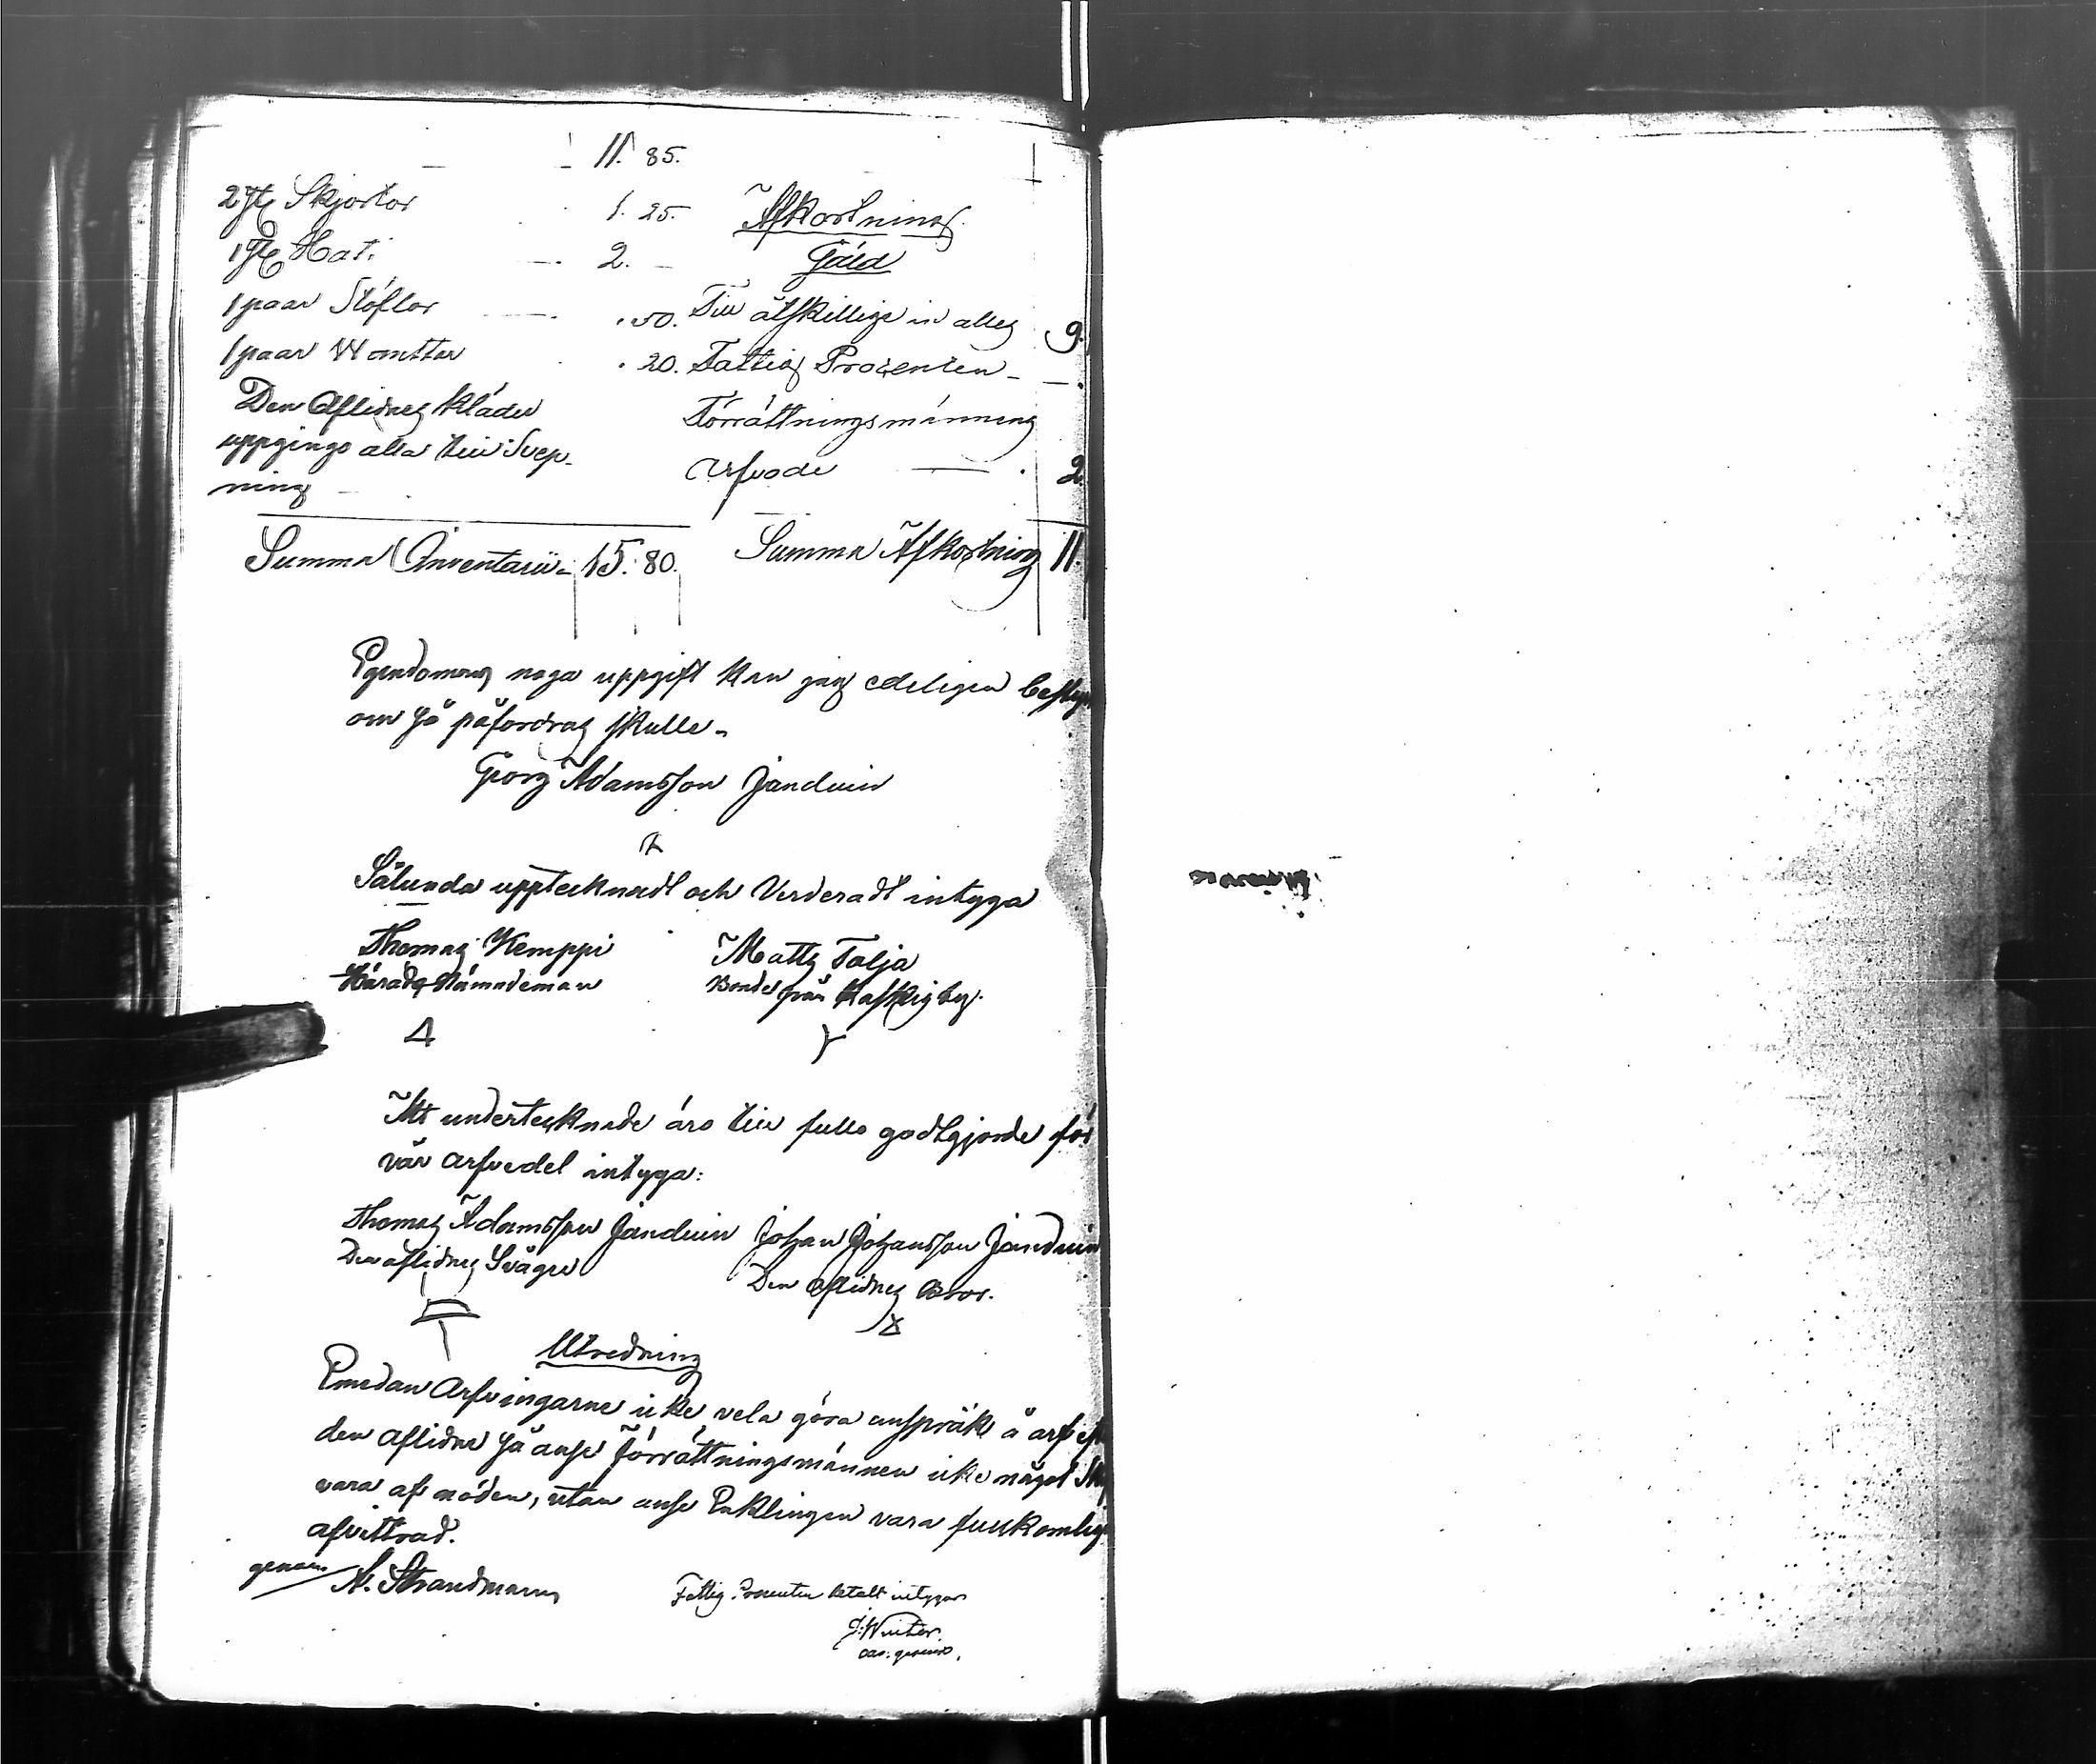 11. 85.
2 st Skjortor 1. 25.
1 st Hatt 2. —
1 paar Stöflor . 50.
1 paar Wantar . 20.
Den Aflidnes kläder
uppgingo alla till Svep-
ning —
Summa Inventarii - 15. 80.
Afkortning
Gäld
Till åtskillige in alles 9.
Fattig Procenten -
Förrättningsmännens
Arfvode — 2.
Summa Afkortning 11.
Egendomens noga uppgift kan jag edeligen
om så påfordras skulle -
Georg Adamsson Janduin
Sålunda upptecknadt och Värderadt intyga
Thomas Kemppi Matts Talja
Härads Nämndeman Bonde från Kaskis by.
Att undertecknade äro till fullo godtgjorde för
vår arfvedel intyga:
Thomas Adamsson Janduin Johan Johansson Janduin
Den aflidnes Svåger Den aflidnes Bror.
Utredning
Emedan Arfvingarne icke vela göra anspråk å arf
den aflidne så anse Förrättningsmännen icke något
vara af nöden, utan anse Enklingen vara
afvittrad.
genom A. Strandmann
Fattig Procenten betalt intygar
J. Winter